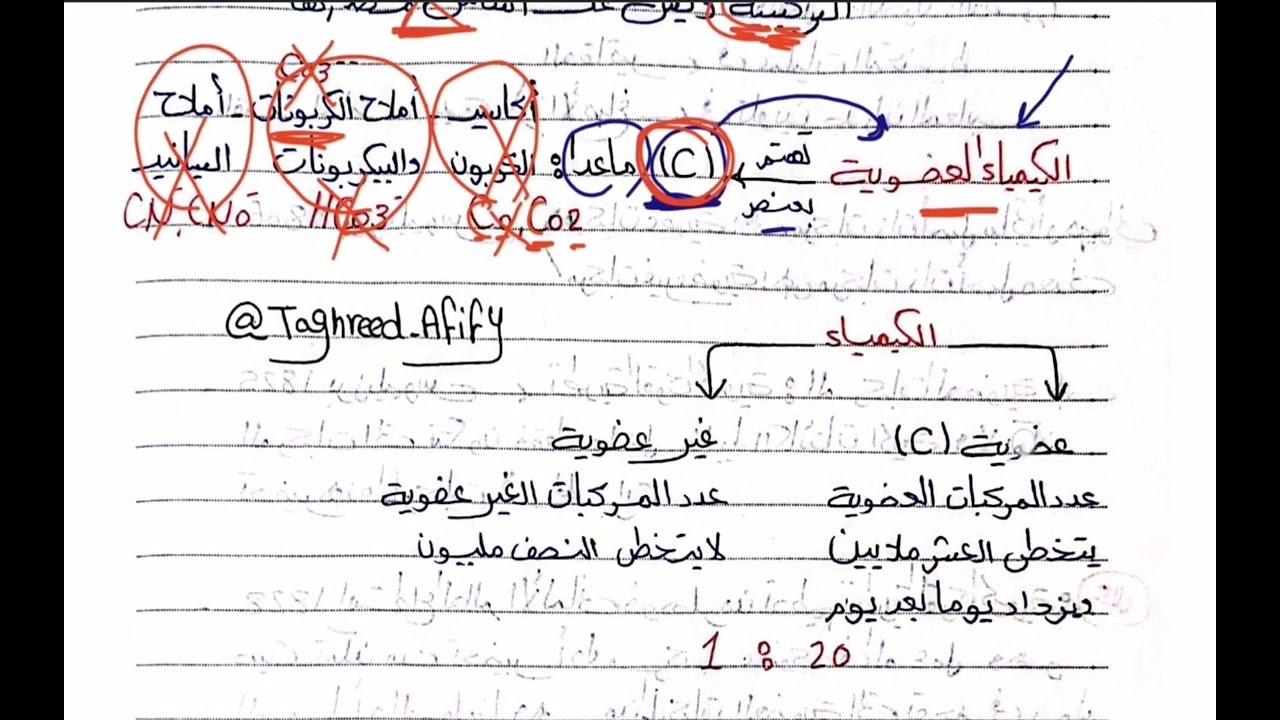 Co3--
الكيمياء العضوية تهتم بعنصر (C) ماعدا : أكاسيد الكربون أملاح الكربونات والبيكربونات - أملاح السيانيد
Co, Co2 HCo3- CN-, CNO-
@Taghreed_Afify
الكيمياء
عضوية (C) غير عضوية
عدد المركبات العضوية عدد المركبات الغير عضوية
يتخطى العشر ملايين لايتخطى النصف مليون
ويزداد يوما بعد يوم
1 : 20